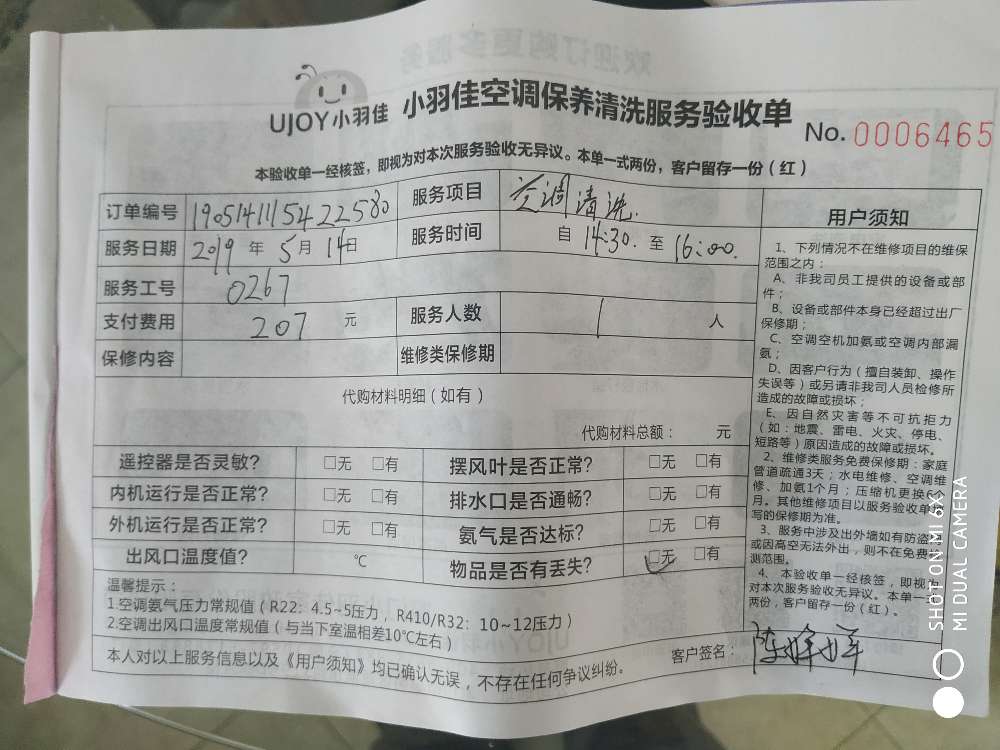 UJOY小羽佳 小羽佳空调保养清洗服务验收单
No. 0006465
本验收单一经核签，即视为对本次服务验收无异议。本单一式两份，客户留存一份（红）
订单编号 1905141115422580 服务项目 空调清洗.
服务日期 2019 年 5 月 14 日 服务时间 自 14:30. 至 16:00.
服务工号 0267
支付费用 207 元 服务人数 1 人
保修内容 维修类保修期
代购材料明细（如有）
代购材料总额： 元
遥控器是否灵敏? □无 □有 摆风叶是否正常? □无 □有
内机运行是否正常? □无 □有 排水口是否通畅? □无 □有
外机运行是否正常? □无 □有 氨气是否达标? □无 □有
出风口温度值? ℃ 物品是否有丢失? ☑无 □有
温馨提示：
1.空调氨气压力常规值（R22: 4.5~5压力，R410/R32: 10~12压力）
2.空调出风口温度常规值（与当下室温相差10℃左右）
本人对以上服务信息以及《用户须知》均已确认无误，不存在任何争议纠纷。
客户签名：
用户须知
1、下列情况不在维修项目的维保
范围之内：
A、非我司员工提供的设备或部
件；
B、设备或部件本身已经超过出厂
保修期；
C、空调空机加氨或空调内部漏
氨；
D、因客户行为（擅自装卸、操作
失误等）或另请非我司人员检修所
造成的故障或损坏；
E、因自然灾害等不可抗拒力
（如：地震、雷电、火灾、停电、
短路等）原因造成的故障或损坏。
2、维修类服务免费保修期：家庭
管道疏通3天；水电维修、空调维
修、加氨1个月；压缩机更换6个
月。其他维修项目以服务验收单填
写的保修期为准。
3、服务中涉及出外墙如有防盗
或因高空无法外出，则不在免费
测范围。
4、本验收单一经核签，即视为
对本次服务验收无异议。本单一式
两份，客户留存一份（红）。
SHOT ON MI 6X
MI DUAL CAMERA